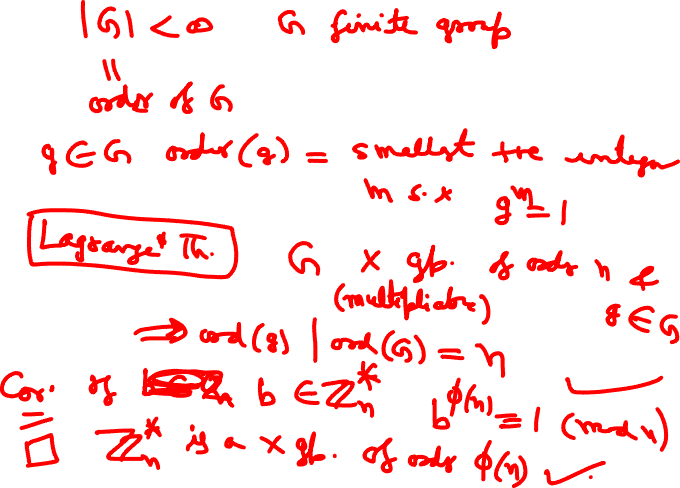 |G| < ∞ G finite group
||
order of G
g ∈ G order(g) = smallest +ve integer
m s.t g^m = 1
Lagrange's Th. G × gp. of order n &
(multiplicative) g ∈ G
⇒ ord(g) | ord(G) = n
Cor. If b ∈ ℤ_n^* b^{φ(n)} ≡ 1 (mod n)
□ ℤ_n^* is a × gp. of order φ(n) ✓.